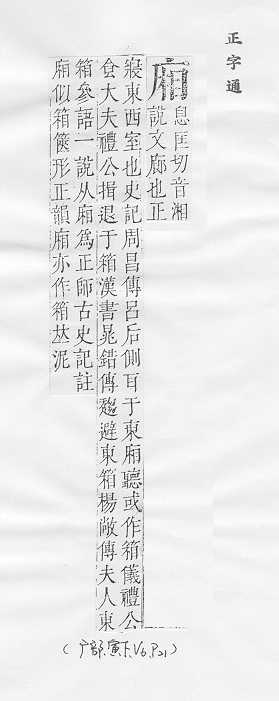 正字通
廂
息匡切音湘
說文廊也正
寢東西室也史記周昌傳呂后側耳于東廂聽或作箱儀禮公
食大夫禮公揖退于箱漢書晁錯傳趨避東箱楊敞傳夫人東
箱參語一說从廂為正師古史記註
廂似箱篋形正韻廂亦作箱𠀤泥
(广部.寅下.V6.P21)